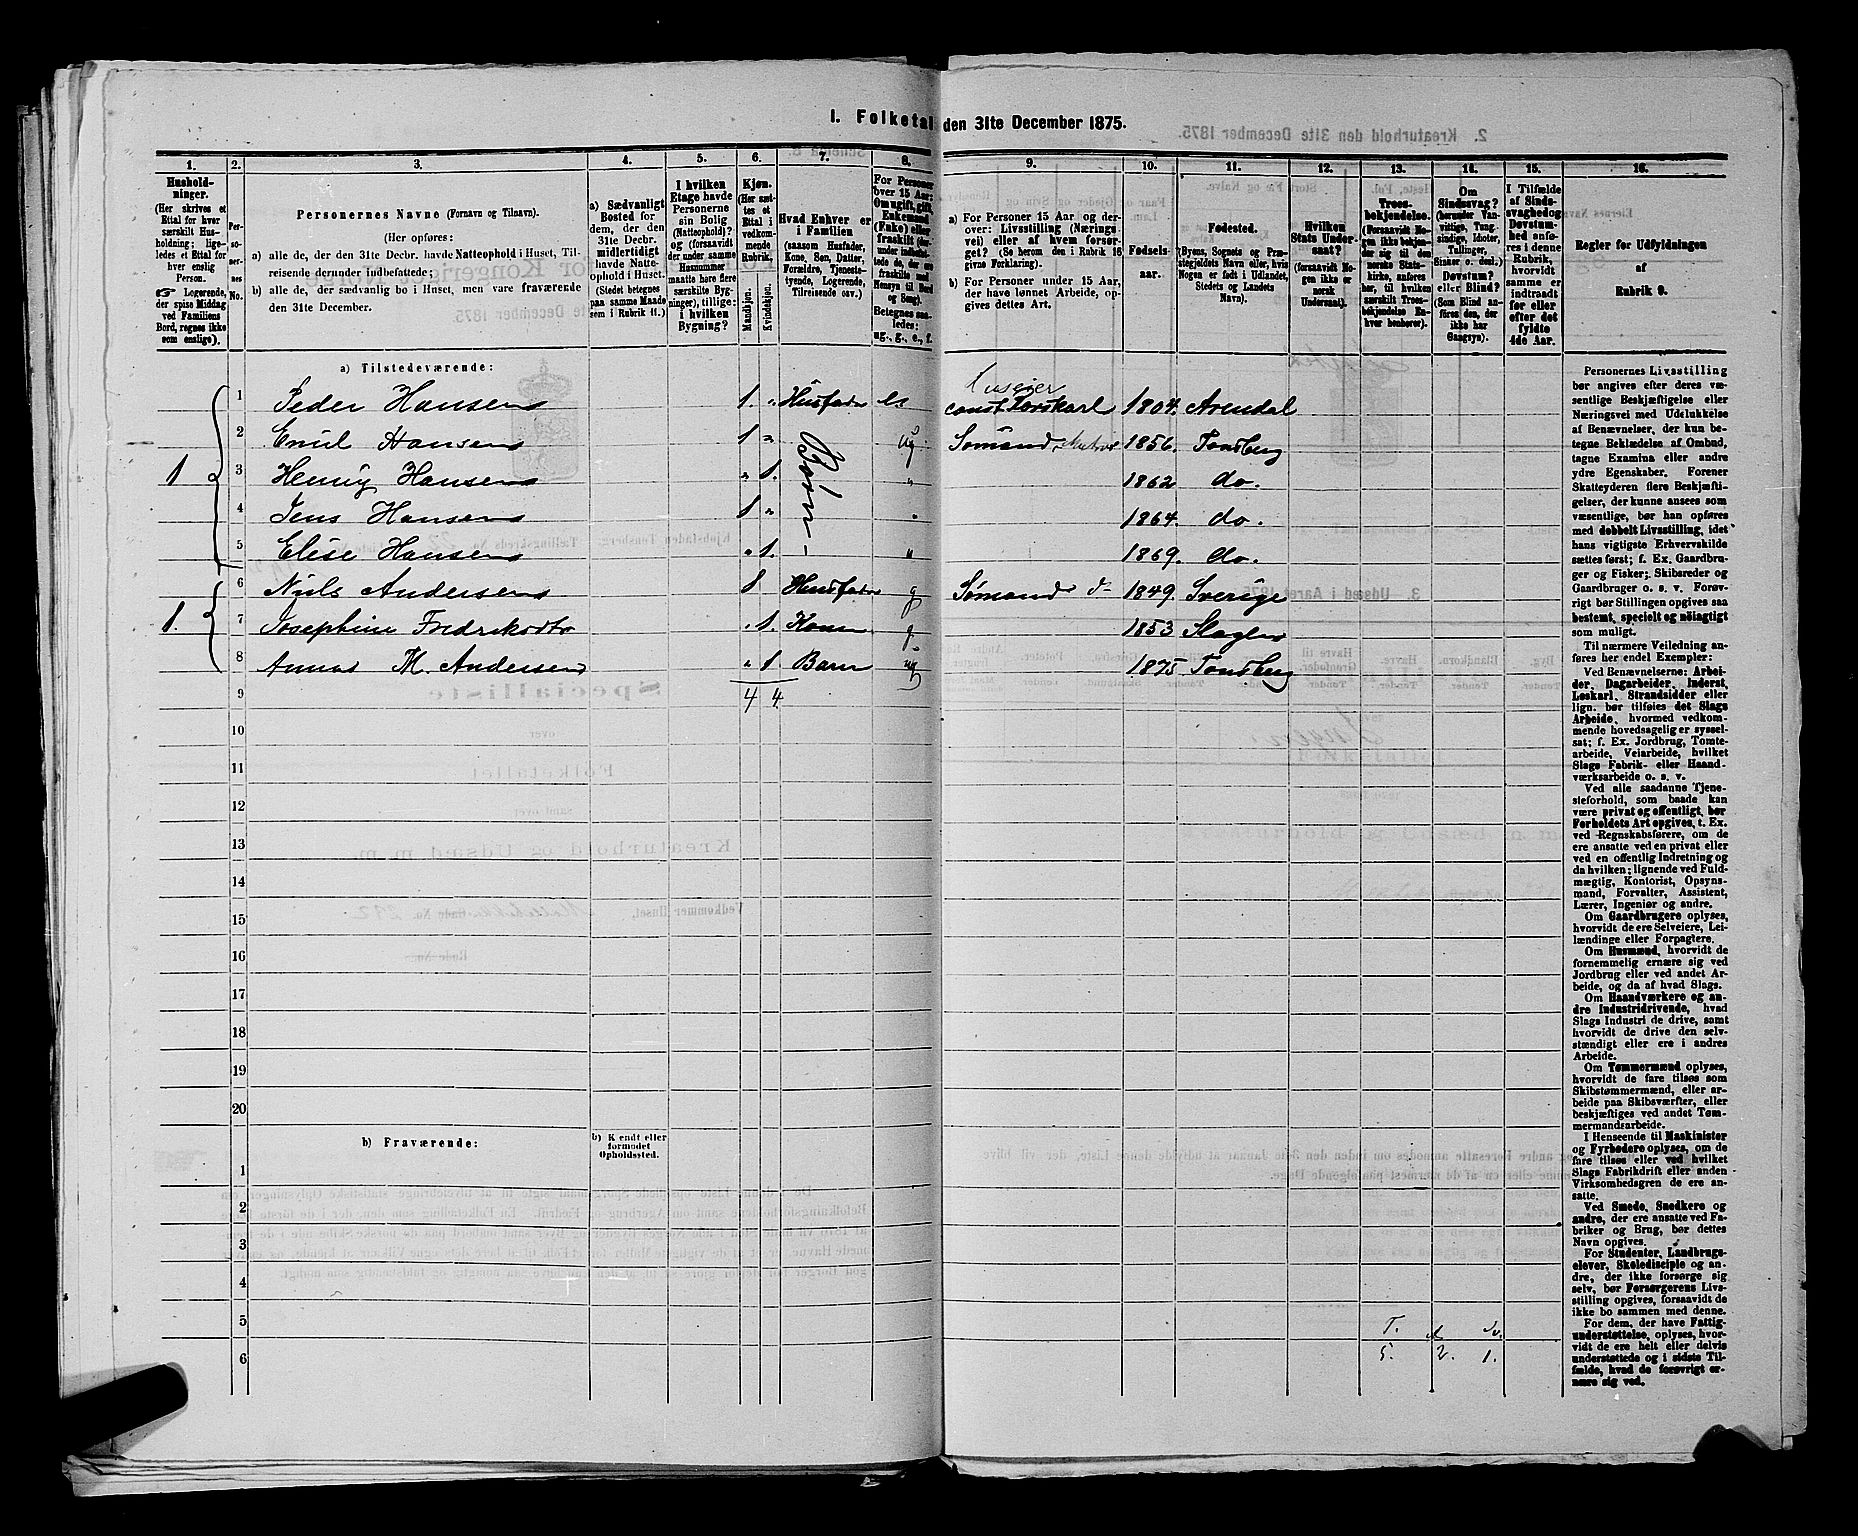 1. Folketal den 31te December 1875.
1. 2. 3. 4. 5. 6. 7. 8. 9. 10. 11. 12. 13. 14. 15. 16.
Hushold-
ninger.
(Her skrives et
Ettal for hver
særskilt Hus-
holdning; lige-
ledes et Ettal
for hver
enslig
Person.
☞ Logerende,
der spise Middag
ved Familiens
Bord, regnes ikke
som enslige).
Per-
so-
ner-
nes
No.
Personernes Navne (Fornavn og Tilnavn).
(Her opføres:
a) alle de, der den 31te Decbr. havde Natteophold i Huset, Til-
reisende derunder indbefattede;
b) alle de, der sædvanlig bo i Huset, men vare fraværende
den 31te December.
a) Sædvanligt
Bosted for
dem, der den
31te Decbr.
midlertidigt
havde Natte-
ophold i Huset.
(Stedet betegnes
paa samme Maade
som i Rubrik 11.)
I hvilken
Etage havde
Personerne
sin Bolig
(Natteophold)?
og (forsaavidt
der under samme
Husnummer
maatte høre flere
særskilte Byg-
ninger), tillige:
i hvilken
Bygning?
Kjøn.
(Her sæt-
tes et
Ettal i
vedkom-
mende
Rubrik.
Mandkjøn.
Kvindekjøn.
Hvad Enhver er
i Familien
(saasom Husfader,
Kone, Søn, Datter,
Forældre, Tjeneste-
tyende, Logerende,
Tilreisende osv.)
For Personer
over 15 Aar:
Om ugift, gift,
Enkemand
(Enke) eller
fraskilt
Betegnes saa-
ledes:
ug., g., e., f.
a) For Personer 15 Aar og der-
over: Livsstilling (Nærings-
vei) eller af hvem forsør-
get? (Se herom den i Rubrik 16
givne Forklaring).
b) For Personer under 15 Aar,
der have lønnet Arbeide, op-
gives dettes Art.
Fødsels-
aar.
Fødested.
(Byens, Sognets og Præ-
stegjeldets Navn, eller, hvis
Nogen er født i Udlandet,
Stedets og Landets
Navn).
Hvilken
Stats Under-
saat?
(forsaavidt No-
gen ikke er
norsk
Undersaat).
Troes-
bekjendelse.
(Forsaavidt No-
gen ikke bekjen-
der sig til den
norske Stats-
kirke, anføres
her, til hvilken
særskilt Troes-
bekjendelse En-
hver henhører).
Om
Sindssvag?
(herunder Van-
vittige, Tung-
sindige, Idioter,
Tullinger,
Sinker o. desl.)
Døvstum?
eller Blind?
(Som Blind an-
føres den, der
ikke har
Gangsyn).
I Tilfælde
af Sinds-
svaghed og
Døvstum-
hed anfø-
res i denne
Rubrik,
hvorvidt
samme er
indtraadt
før eller
efter det
fyldte
4de Aar.
Regler for Udfyldningen
af
Rubrik 9.
a) Tilstedeværende:
Huseier
1 1 Peder Hansen 1. " Husfader e. const. Torskarl 1804. Arendal
2 Emil Hansen 1 " Børn ug. Sømand 1856. Tønsberg
3 Henny Hansen " 1. " 1862 do.
4 Jens Hansen 1 " " 1864. do.
5 Elise Hansen " 1. " 1869. do.
1. 6 Niels Andersen 1 Husfader g Sømand 1849. Sverige
7 Josephine " 1. Kone g. 1853 Slagen
8 M. Andersen " 1 Barn ug 1875 Tønsberg
9 4 4.
10
11
12
13
14
15
16
17
18
19
20
b) Fraværende:
b) Kjendt eller
formodet
Opholdssted.
1
2
3
4
5
6
T.
5. 2. 1.
Personernes Livsstilling
bør angives efter deres væ-
sentlige Beskjæftigelse eller
Næringsvei med Udelukkelse
af Benævnelser, der kun be-
tegne Beklædelse af Ombud,
tagne Examina eller andre
ydre Egenskaber. Forener
Skatteyderen flere Beskjæfti-
gelser, der kunne ansees som
væsentlige, bør han opføres
med dobbelt Livsstilling, idet
hans vigtigste Erhvervskilde
sættes først; f. Ex. Gaardbru-
ger og Fisker; Skibsreder og
Gaardbruger o. s. v. Forøv-
rigt bør Stillingen opgives saa
bestemt, specielt og nøiagtigt
som muligt.
Til nærmere Veiledning an-
føres her endel Exempler:
Ved Benævnelserne: Arbei-
der, Dagarbeider, Inderst,
Løskarl, Strandsidder eller
lign. bør tilføies det Slags
Arbeide, hvormed vedkom-
mende hovedsagelig er syssel-
sat; f. Ex. Jordbrug, Tomte-
arbeide, Veiarbeide, hvilket
Slags Fabrik- eller Haand-
værksarbeide o. s. v.
Ved alle saadanne Tjene-
steforhold, som baade kan
være privat og offentligt, bør
Forholdets Art opgives, t. Ex.
ved Regnskabsførere, om de
ere ansatte ved en privat eller
ved en offentlig Indretning og
da hvilken; lignende ved Fuld-
mægtig, Kontorist, Opsyns-
mand, Forvalter, Assistent,
Lærer, Ingeniør og andre.
Om Gaardbrugere oplyses,
hvorvidt de ere Selveiere, Lei-
lændinge eller Forpagtere.
Om Husmænd, hvorvidt de
fornemmelig ernære sig ved
Jordbrug eller ved andet Ar-
beide, og da af hvad Slags.
Om Haandværkere og an-
dre Industridrivende, hvad
Slags Industri de drive, samt
hvorvidt de drive den selv-
stændigt eller ere i andres
Arbeide.
Om Tømmermænd oplyses,
hvorvidt de fare tilsøs som
Skibstømmermænd, eller ar-
beide paa Skibsværfter, eller
beskjæftiges ved andet Tøm-
mermandsarbeide.
I Henseende til Maskinister
og Fyrbødere oplyses, om de
fare tilsøs eller ved hvilket
Slags Fabrikdrift eller anden
Virksomhedsgren de ere an-
satte.
Ved Smede, Snedkere og
andre, der ere ansatte ved Fa-
briker og Brug, bør dettes
Navn opgives.
For Studenter, Landbrugs-
elever, Skoledisciple og an-
dre, der ikke forsørge sig
selv, bør Forsørgerens Livs-
stilling opgives, forsaavidt de
ikke bo sammen med denne.
For dem, der have Fattig-
understøttelse, oplyses, hvor-
vidt de ere helt eller delvis
understøttede og i sidste Til-
fælde, hvad de forøvrigt er-
nære sig ved.